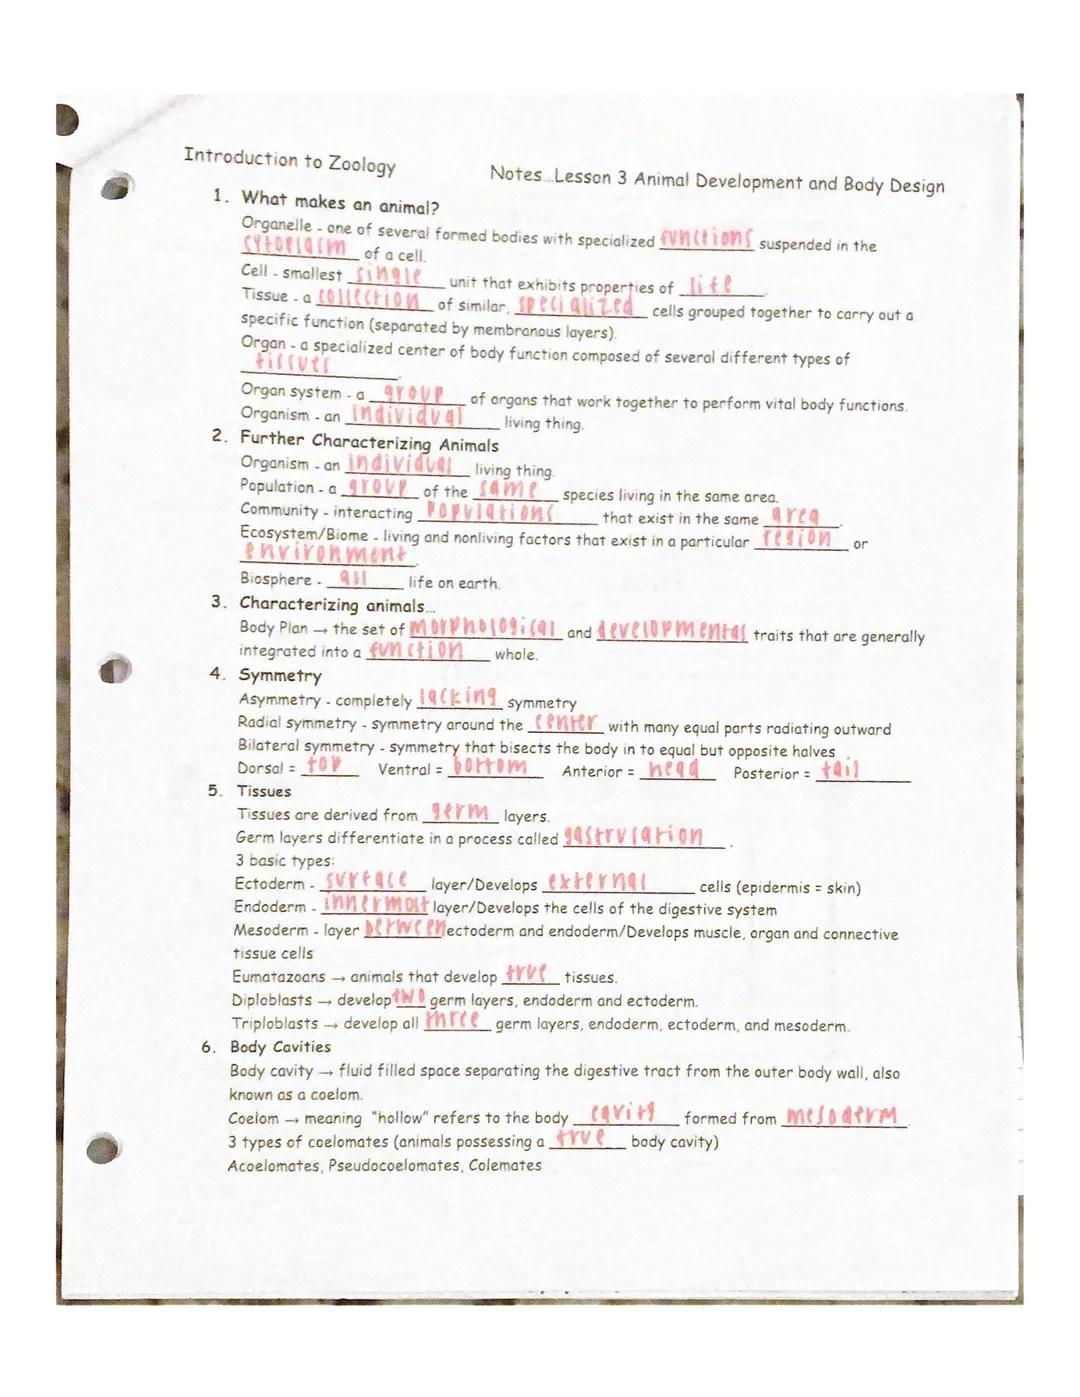 Introduction to Zoology
Notes...Lesson 3 Animal Development and Body Design
1. What makes an animal?
Organelle - one of several formed bodies with specialized functions suspended in the
cytoplasm of a cell.
Cell - smallest single unit that exhibits properties of life.
Tissue - a collection of similar, specialized cells grouped together to carry out a
specific function (separated by membranous layers).
Organ - a specialized center of body function composed of several different types of
tissues.
Organ system - a group of organs that work together to perform vital body functions.
Organism - an individual living thing.
2. Further Characterizing Animals
Organism - an individual living thing.
Population - a group of the same species living in the same area.
Community - interacting populations that exist in the same area.
Ecosystem/Biome - living and nonliving factors that exist in a particular region or
environment.
Biosphere - all life on earth.
3. Characterizing animals...
Body Plan → the set of morphological and developmental traits that are generally
integrated into a function whole.
4. Symmetry
Asymmetry - completely lacking symmetry
Radial symmetry - symmetry around the center with many equal parts radiating outward
Bilateral symmetry - symmetry that bisects the body in to equal but opposite halves
Dorsal = top Ventral = bottom Anterior = head Posterior = tail
5. Tissues
Tissues are derived from germ layers.
Germ layers differentiate in a process called gastrulation.
3 basic types:
Ectoderm - surface layer/Develops external cells (epidermis = skin)
Endoderm - innermost layer/Develops the cells of the digestive system
Mesoderm - layer between ectoderm and endoderm/Develops muscle, organ and connective
tissue cells
Eumatazoans → animals that develop true tissues.
Diploblasts → develop two germ layers, endoderm and ectoderm.
Triploblasts → develop all three germ layers, endoderm, ectoderm, and mesoderm.
6. Body Cavities
Body cavity → fluid filled space separating the digestive tract from the outer body wall, also
known as a coelom.
Coelom → meaning "hollow" refers to the body cavity formed from mesoderm.
3 types of coelomates (animals possessing a true body cavity)
Acoelomates, Pseudocoelomates, Colemates